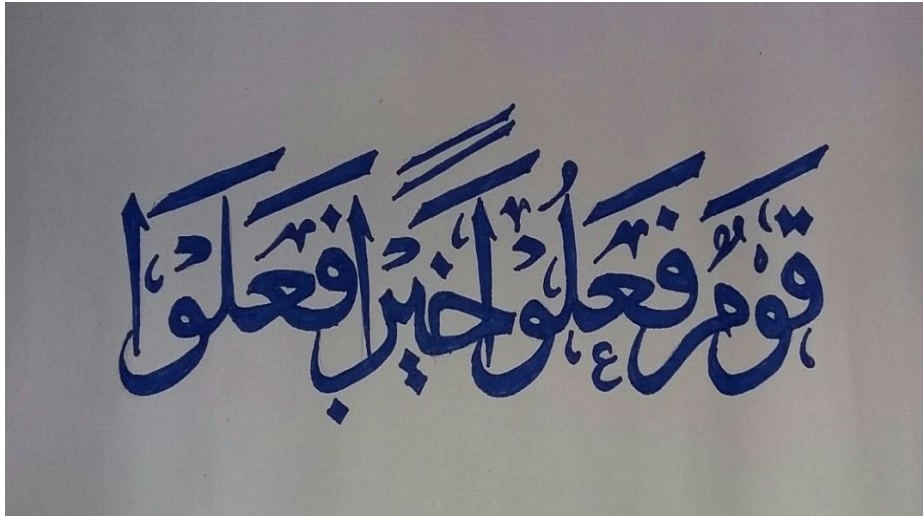 قَوْمٌ فَعَلُوا خَيْرًا فَعَلَوْا